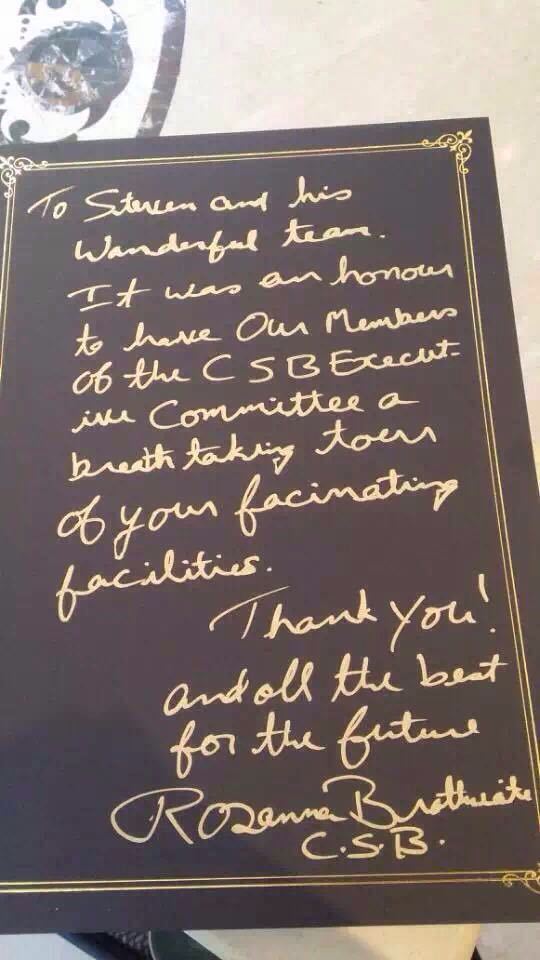 To Steven and his
Wonderful team.
It was an honour
to have Our Members
of the CSB Execut-
ive Committee a
breath taking tour
of your facinating
facilities.
Thank You!
and all the best
for the future
Rosanna Brathwaite
C.S.B.